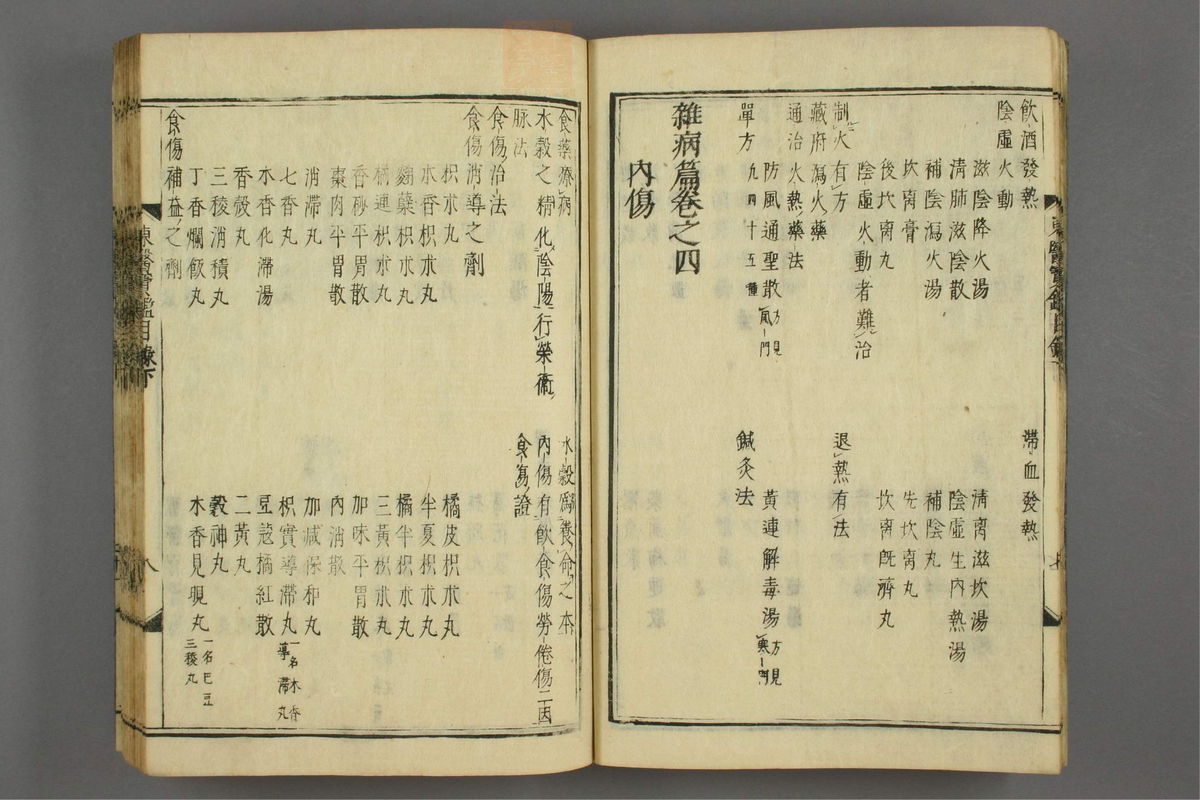 飲酒發熱　滯血發熱
陰虛火動
滋陰降火湯　淸离滋坎湯
淸肺滋陰散　陰虛生內熱湯
補陰瀉火湯　補陰丸
坎离膏　先坎离丸
後坎离丸　坎离旣濟丸
陰虛火動者難治
制火有方　退熱有法
藏府瀉火藥
通治火熱藥法
防風通聖散方見風門　黃連解毒湯方見寒門
單方九四十五種　鍼灸法
雜病篇卷之四
內傷
東醫寶鑑目錄下
食藥療病　水穀爲養命之本
水穀之精化陰陽行榮衞　內傷有飮食傷勞倦傷二因
脉法　食傷證
食傷治法
食傷消導之劑
枳朮丸　橘皮枳朮丸
木香枳朮丸　半夏枳朮丸
麴蘗枳朮丸　橘半枳朮丸
橘連枳朮丸　三黃枳朮丸
香砂平胃散　加味平胃散
棗肉平胃散　內消散
消滯丸　加减保和丸
七香丸　枳實導滯丸一名木香導滯丸
木香化滯湯　豆蔲橘紅散
香殼丸　二黃丸
三稜消積丸　穀神丸
丁香爛飯丸　木香見晛丸一名巴豆三稜丸
食傷補益之劑
東醫寶鑑目錄下
八